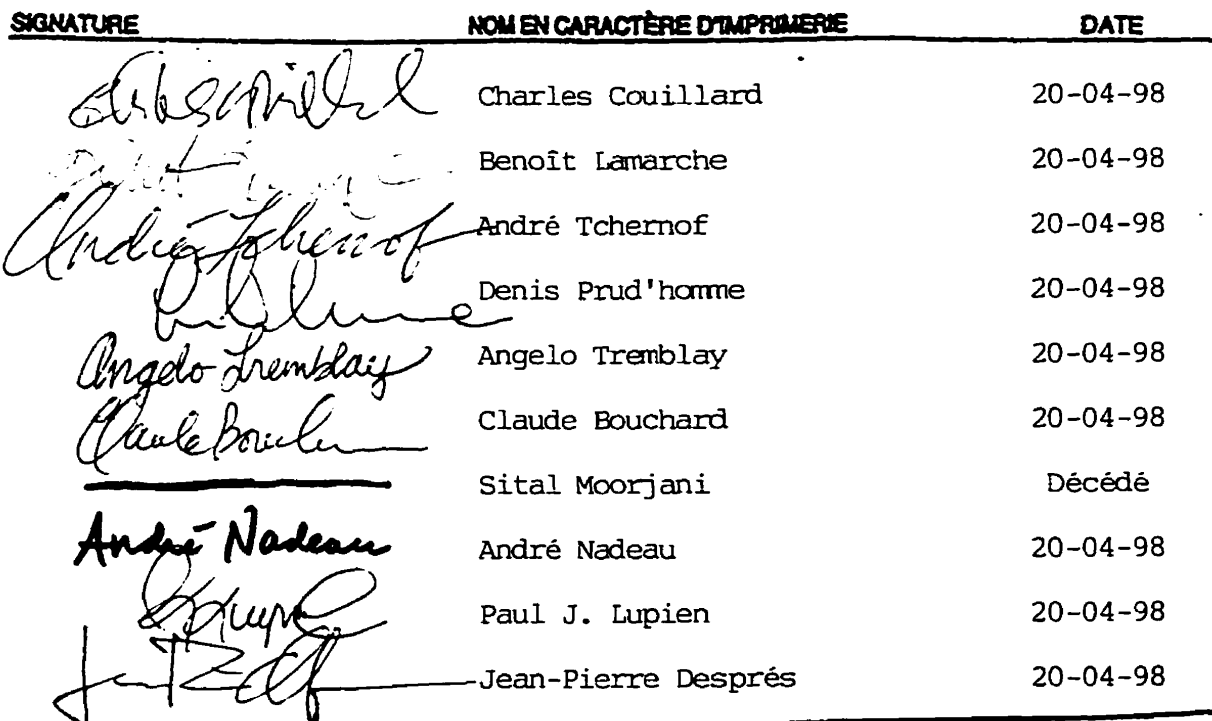 SIGNATURE NOM EN CARACTÈRE D'IMPRIMERIE DATE
Charles Couillard 20-04-98
Benoît Lamarche 20-04-98
André Tchernof André Tchernof 20-04-98
Denis Prud'homme 20-04-98
Angelo Tremblay Angelo Tremblay 20-04-98
Claude Bouchard 20-04-98
Sital Moorjani Décédé
André Nadeau André Nadeau 20-04-98
Paul J. Lupien 20-04-98
Jean-Pierre Després 20-04-98